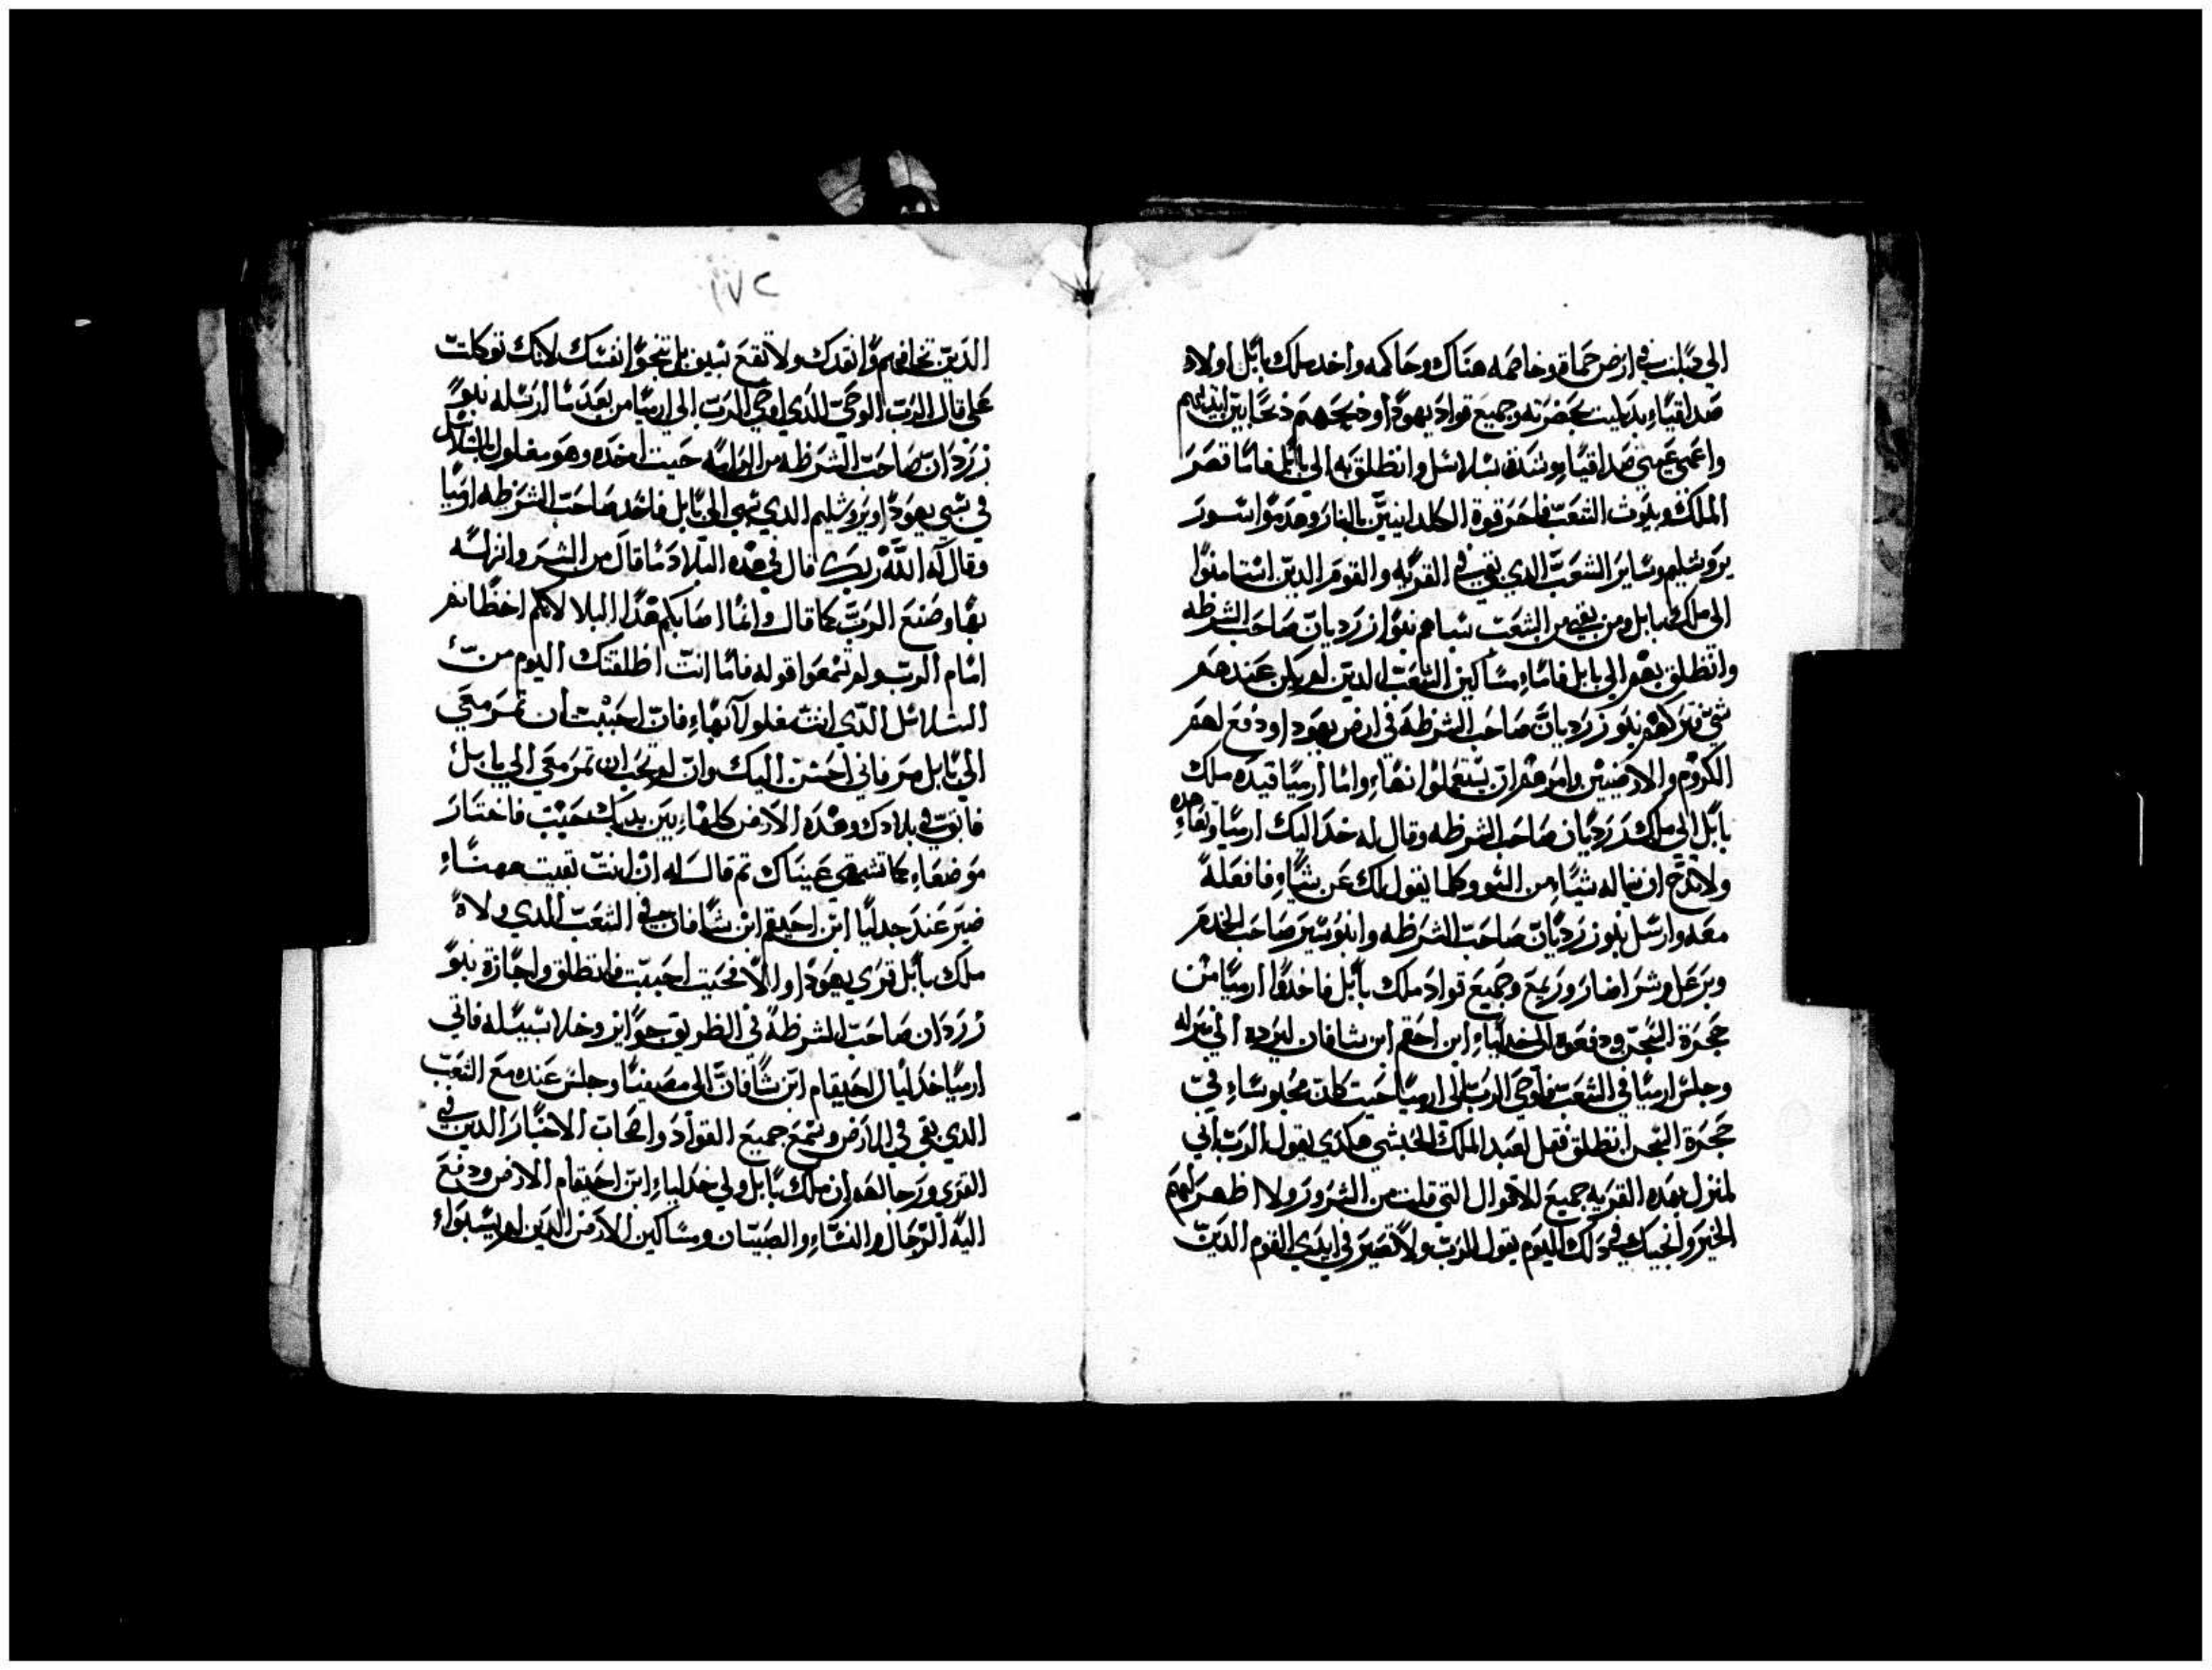 الي دبلت في ارض حماة وخاصمه هناك وحاكمه واخد ملك بابل اولاد
صداقياء بدبليت بحضرته وجميع قواد يهودا ودبحهم دبحا بين ايديهم
واعمي عيني صداقيا وشده بسلاسل وانطلق به الي بابل فاما قصر
الملك وبيوت الشعب فاحرقوة الكلدانيين بالنار وهدموا سور
يروشليم وساير الشعب الدي بقي في القريه والقوم الدين استامنوا
الي ملك بابل ومن بقي من الشعب سباهم نبوزرديان صاحب الشرطه
وانطلق بهم الي بابل فاما مساكين الشعب الدين لم يكن عندهم
شي تركهم نبوزرديان صاحب الشرطه في ارض يهودا ودفع لهم
الكروم والارضيين وامرهم ان يستعملوا انهاء واما ارميا قيده ملك
بابل الي ملك زرديان صاحب الشرطه وقال له خد اليك ارميا وتعاهده
ولا تدع ان يناله شياء من السو وكلما يقول لك عن شياء فافعله
معه وارسل نبوزرديان صاحب الشرطه وانبوسير صاحب الخدم
وبرعل وشراصار وربمع وجميع قواد ملك بابل فاخدوا ارميا من
حجرة السجن ودفعوه الي خدلياء ابن احقم ابن شافان ليرده الي منزله
وجلس ارميا في الشعب فاوحي الرب الي ارميا حيت كان محبوساء في
حجرة السجن انطلق فقل لعبد الملك الحبشي هكدي يقول الرب اني
لمنزل بهده القريه جميع الاقوال التي قلت من الشرور ولا اظهر لهم
الخير وانجيك في دلك اليوم يقول الرب ولا تصير في ايدي القوم الدين
١٧٢
الدين تخافهم وانقدك ولا تقع بل تنجوا نفسك لانك توكلت
علي قال الرب الوحي الدي اوحي الرب الي ارميا من بعد ما ارسله نبو
زردان صاحب الشرطه من الرامه حيت اخده وهو مغلول بالسلاسل
في سبي يهودا ويروشليم الدي سبي الي بابل فاخد صاحب الشرطه ارميا
وقال له الله ربك قال في هده البلاد ما قال من الشر وانزله
بها وصنع الرب كما قال وانما اصابكم هدا البلا لانكم اخطاتم
امام الرب ولم تسمعوا قوله فاما انت اطلقتك اليوم من
السلاسل الدي انت مغلولا بهاء فان احببت ان تمر معي
الي بابل مر فاني احسن اليك وان لم تحب ان تمر معي الي بابل
فابق في بلادك وهده الارض كلهاء بين يديك فاختار
موضعاء كما تشتهي عيناك تم قال له ان انت بقيت ههناء
صير عند جدليا ابن احيقم ابن شافان في الشعب الدي ولاه
ملك بابل قري يهودا والا فحيت احببت فانطلق واجازه نبو
زردان صاحب الشرطه في الطريق جوايز وخلا سبيله فاتي
ارميا خدليا ال احيقام ابن شافان الي مصفيا وجلس عنده مع الشعب
الدي بقي في الارض وسمع جميع القواد واصحاب الاخبار الدين في
القري ورجالهم ان ملك بابل ولي خدلياء ابن احيقام الارض ودفع
اليه الرجال والنساء والصبيان ومساكين الارض الدين لم يسبواء